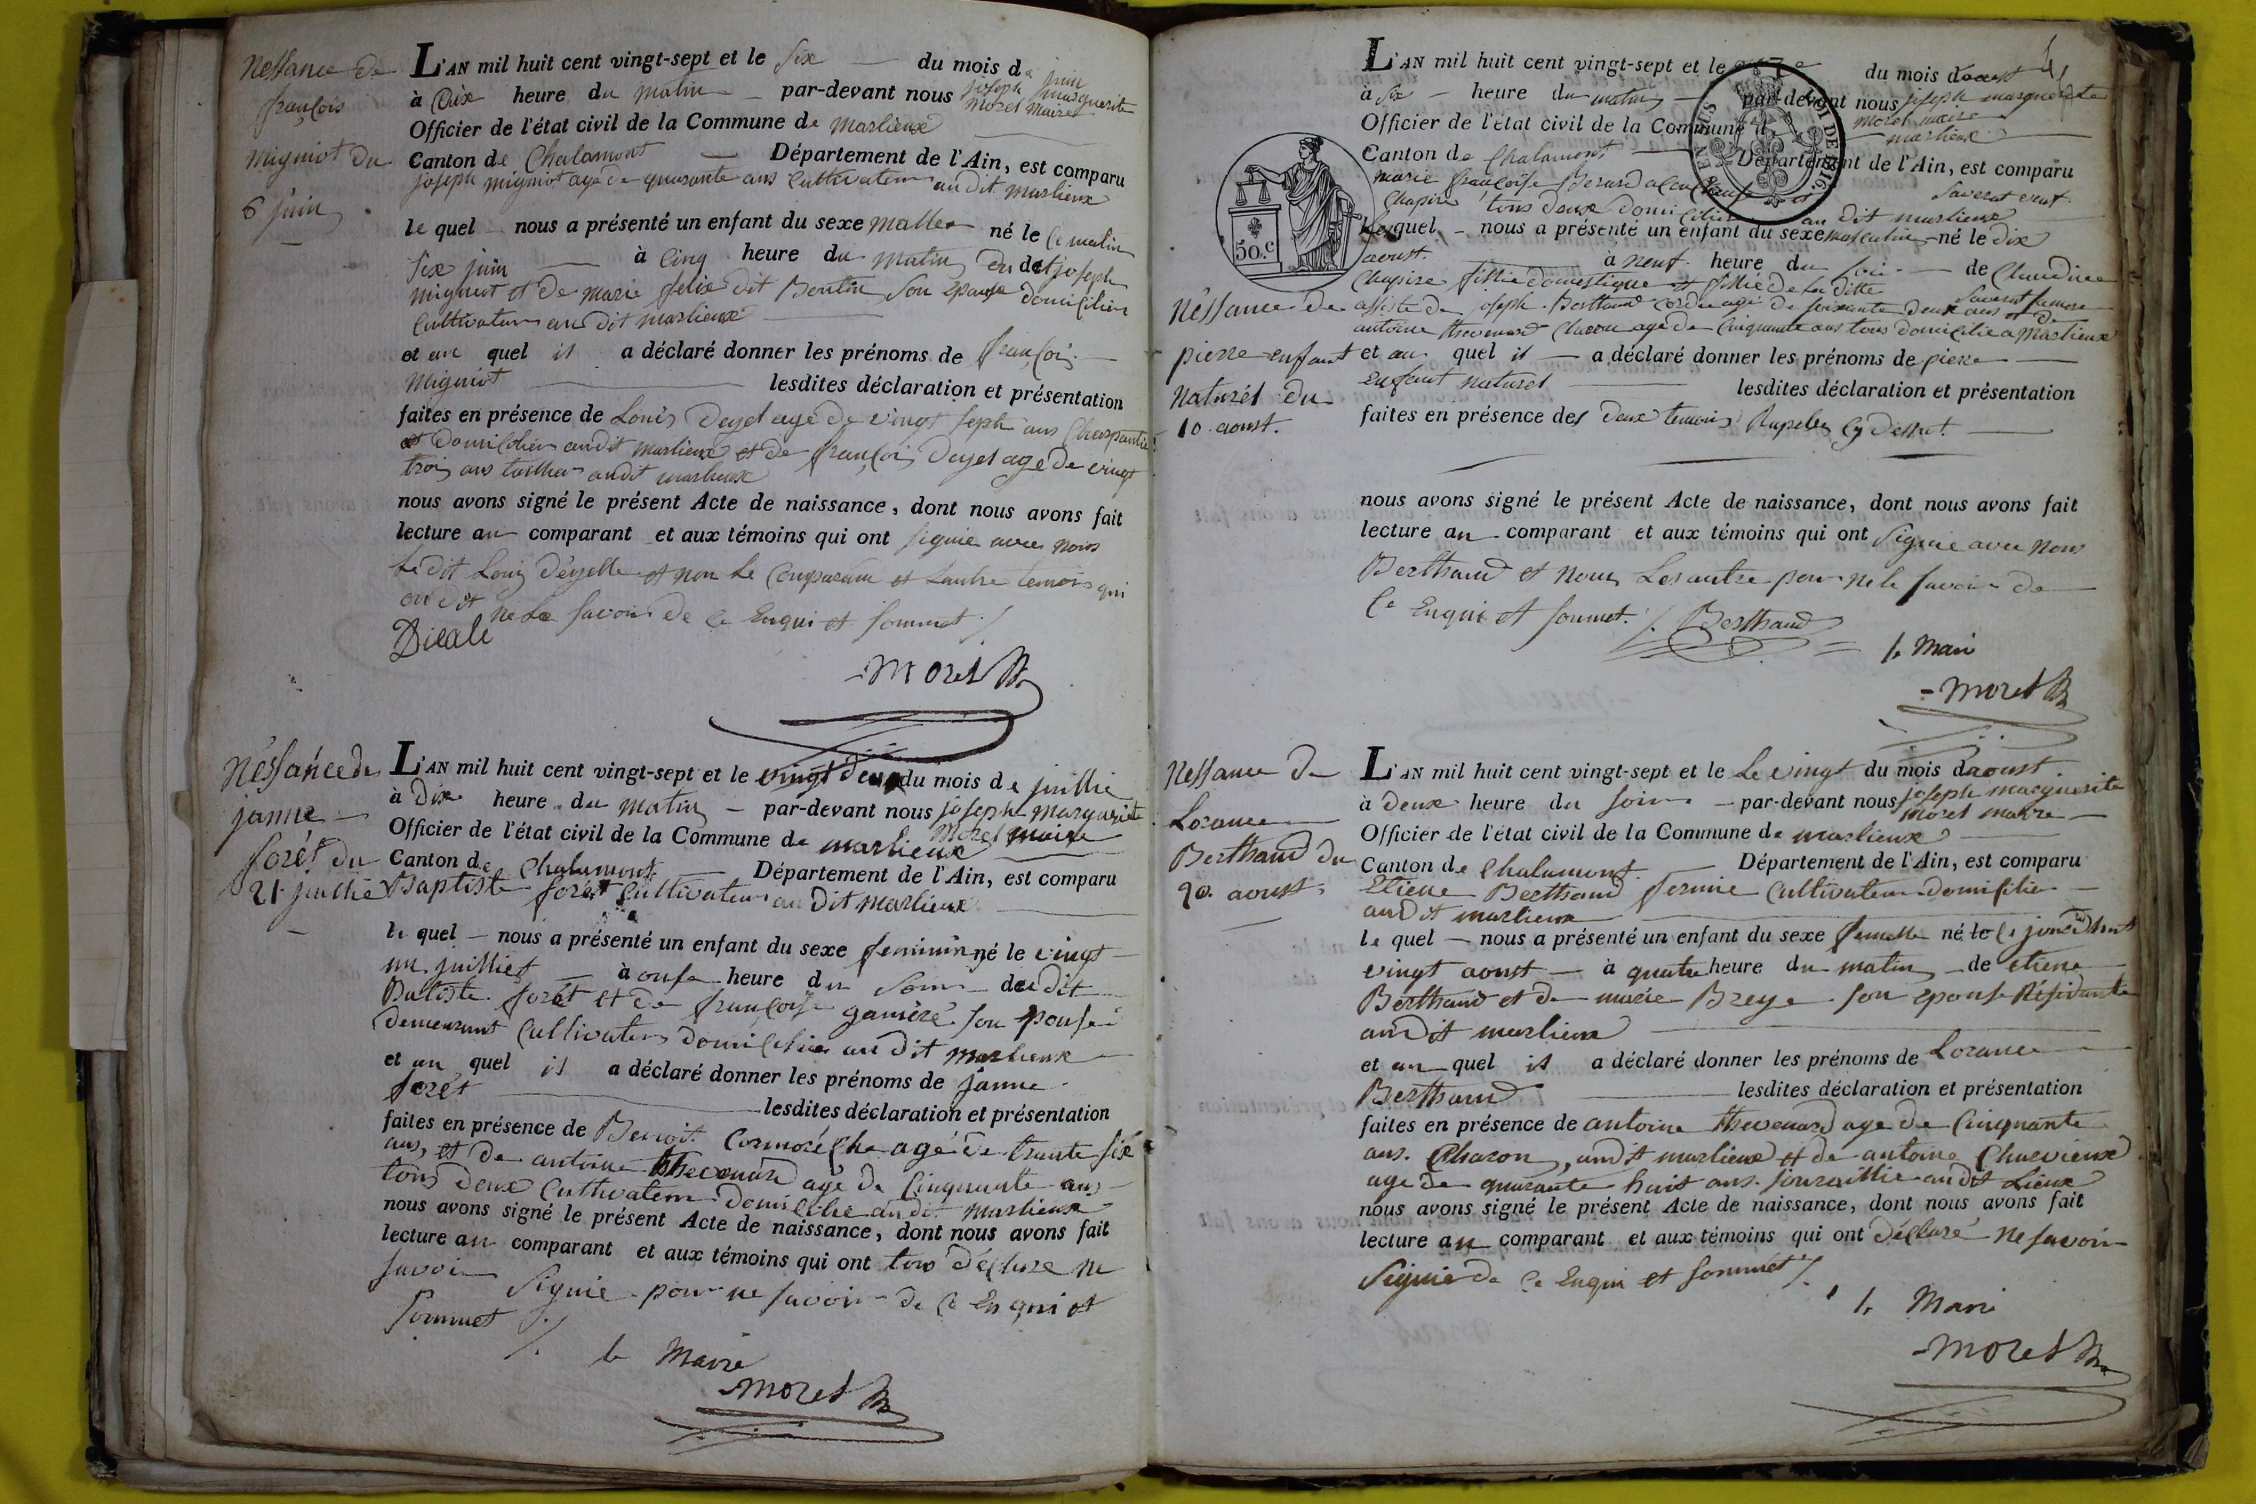 Nessance de
françois
migniot du
6 juin
L'AN mil huit cent vingt-sept et le six du mois de juin
à Dix heure du matin par-devant nous joseph marguerite
moret maire
Officier de l'état civil de la Commune de marlieux
Canton de Chalamont Département de l'Ain, est comparu
joseph migniot agé de quarante ans Cultivateur au dit marlieux
le quel nous a présenté un enfant du sexe malle né le Ce matin
six juin à Cinq heure du matin du dit joseph
migniot et de marie felix dit Boutin son epouse domicilier
Cultivateur au dit marlieux
et au quel il a déclaré donner les prénoms de françois
Migniot lesdites déclaration et présentation
faites en présence de Louis Deyel agé de vingt seph ans Charpantier
et domicilier audit marlieux et de françois Deyel age de vingt
trois ans audit marlieux
nous avons signé le présent Acte de naissance, dont nous avons fait
lecture au comparant et aux témoins qui ont signie avec nous
Le dit Louis Deyelle et non Le Comparant et Lautre temois qui
on dit ne Le savoir de Ce Enqui et sommet ./.
moret
Nessance de
janne
forét du
21 juillié
L'AN mil huit cent vingt-sept et le vingt deux du mois de juillié
à Dix heure du matin par-devant nous joseph Marguerite
Moret maire
Officier de l'état civil de la Commune de marlieux
Canton de Chalamont Département de l'Ain, est comparu
Baptiste forét Cultivateur au Dit Marlieux
le quel nous a présenté un enfant du sexe feminin né le vingt
un juilliet à onse heure du soir du Dit
Batiste forét et de françoise ganiere son epouse
demeurant Cultivateur domicilié au dit marlieux
et au quel il a déclaré donner les prénoms de janne
forét lesdites déclaration et présentation
faites en présence de Benoit Cormoréche agé de trante six
ans, et de antoine thevenard agé de Cinquante ans
tous deux Cultivateur Domicilié au dit marlieux
nous avons signé le présent Acte de naissance, dont nous avons fait
lecture au comparant et aux témoins qui ont tous déclaré ne
savoir signie pour ne savoir de Ce Enqui et
sommet ./.
le Maire
moret
L'AN mil huit cent vingt-sept et le du mois daoust
à six heure du matin par-devant nous joseph marguerite
moret maire
Officier de l'état civil de la Commune de marlieux
Canton de Chalamont Département de l'Ain, est comparu
marie françoise Berard
Chapire tous deux domicilier au dit marlieux
50.c
lequel nous a présenté un enfant du sexe masculin né le dix
aoust. à neuf heure du soir de Claudine
Chapire fillie domestique et fillié de La ditte
Nessance de
pierre enfant
naturel du
10 aoust.
assisté de joseph Berthaud agé de soixante deux ans et de
antoine thevenard Charon age de Cinquante ans tous domicilié a Marlieux
et au quel il a déclaré donner les prénoms de pierre
enfant naturel lesdites déclaration et présentation
faites en présence des deux temoins Rapeles Cy dessut.
nous avons signé le présent Acte de naissance, dont nous avons fait
lecture au comparant et aux témoins qui ont signie avec nous
Berthaud et nous Les autre pour ne le savoir de
Ce Enqui et sommet ./. Berthaud
le Mairi
moret
Nessance de
Lorance
Berthaud du
20 aoust
L'AN mil huit cent vingt-sept et le Le vingt du mois daoust
à deux heure du soir par-devant nous joseph marguerite
moret maire
Officier de l'état civil de la Commune de marlieux
Canton de Chalamont Département de l'Ain, est comparu
Etiene Berthaud fermie Cultivateur domisilie
au dit marlieux
le quel nous a présenté un enfant du sexe femelle né le
vingt aoust à quatre heure du matin de etiene
Berthaud et de marie Breye son epouse Residante
au dit marlieux
et au quel il a déclaré donner les prénoms de Lorance
Berthaud lesdites déclaration et présentation
faites en présence de antoine thevenard age de Cinquante
ans. Charon, audit marlieux et de antoine Charvieux
age de quarante huit ans. journallié audit Lieux
nous avons signé le présent Acte de naissance, dont nous avons fait
lecture au comparant et aux témoins qui ont déclaré ne savoir
Signie de Ce Enqui et sommét ./.
le Mari
moret